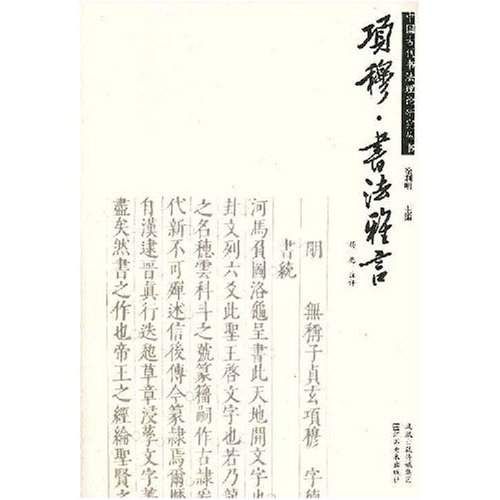 中国古代书法理论研究丛书
主编
項穆·書法雅言
注评
明 無稱子貞玄項穆 字德
書統
河馬負圖洛龜呈書此天地開文字
卦文列六爻此聖王啓文字也若乃
之名穗雲科斗之號篆籀嗣作古隸
代新不可殫述信後傳今篆隸焉爾歷
自漢逮晉真行迭起草章浸孳文字
盡矣然書之作也帝王之經綸聖賢之
凤凰出版传媒集团
江苏美术出版社